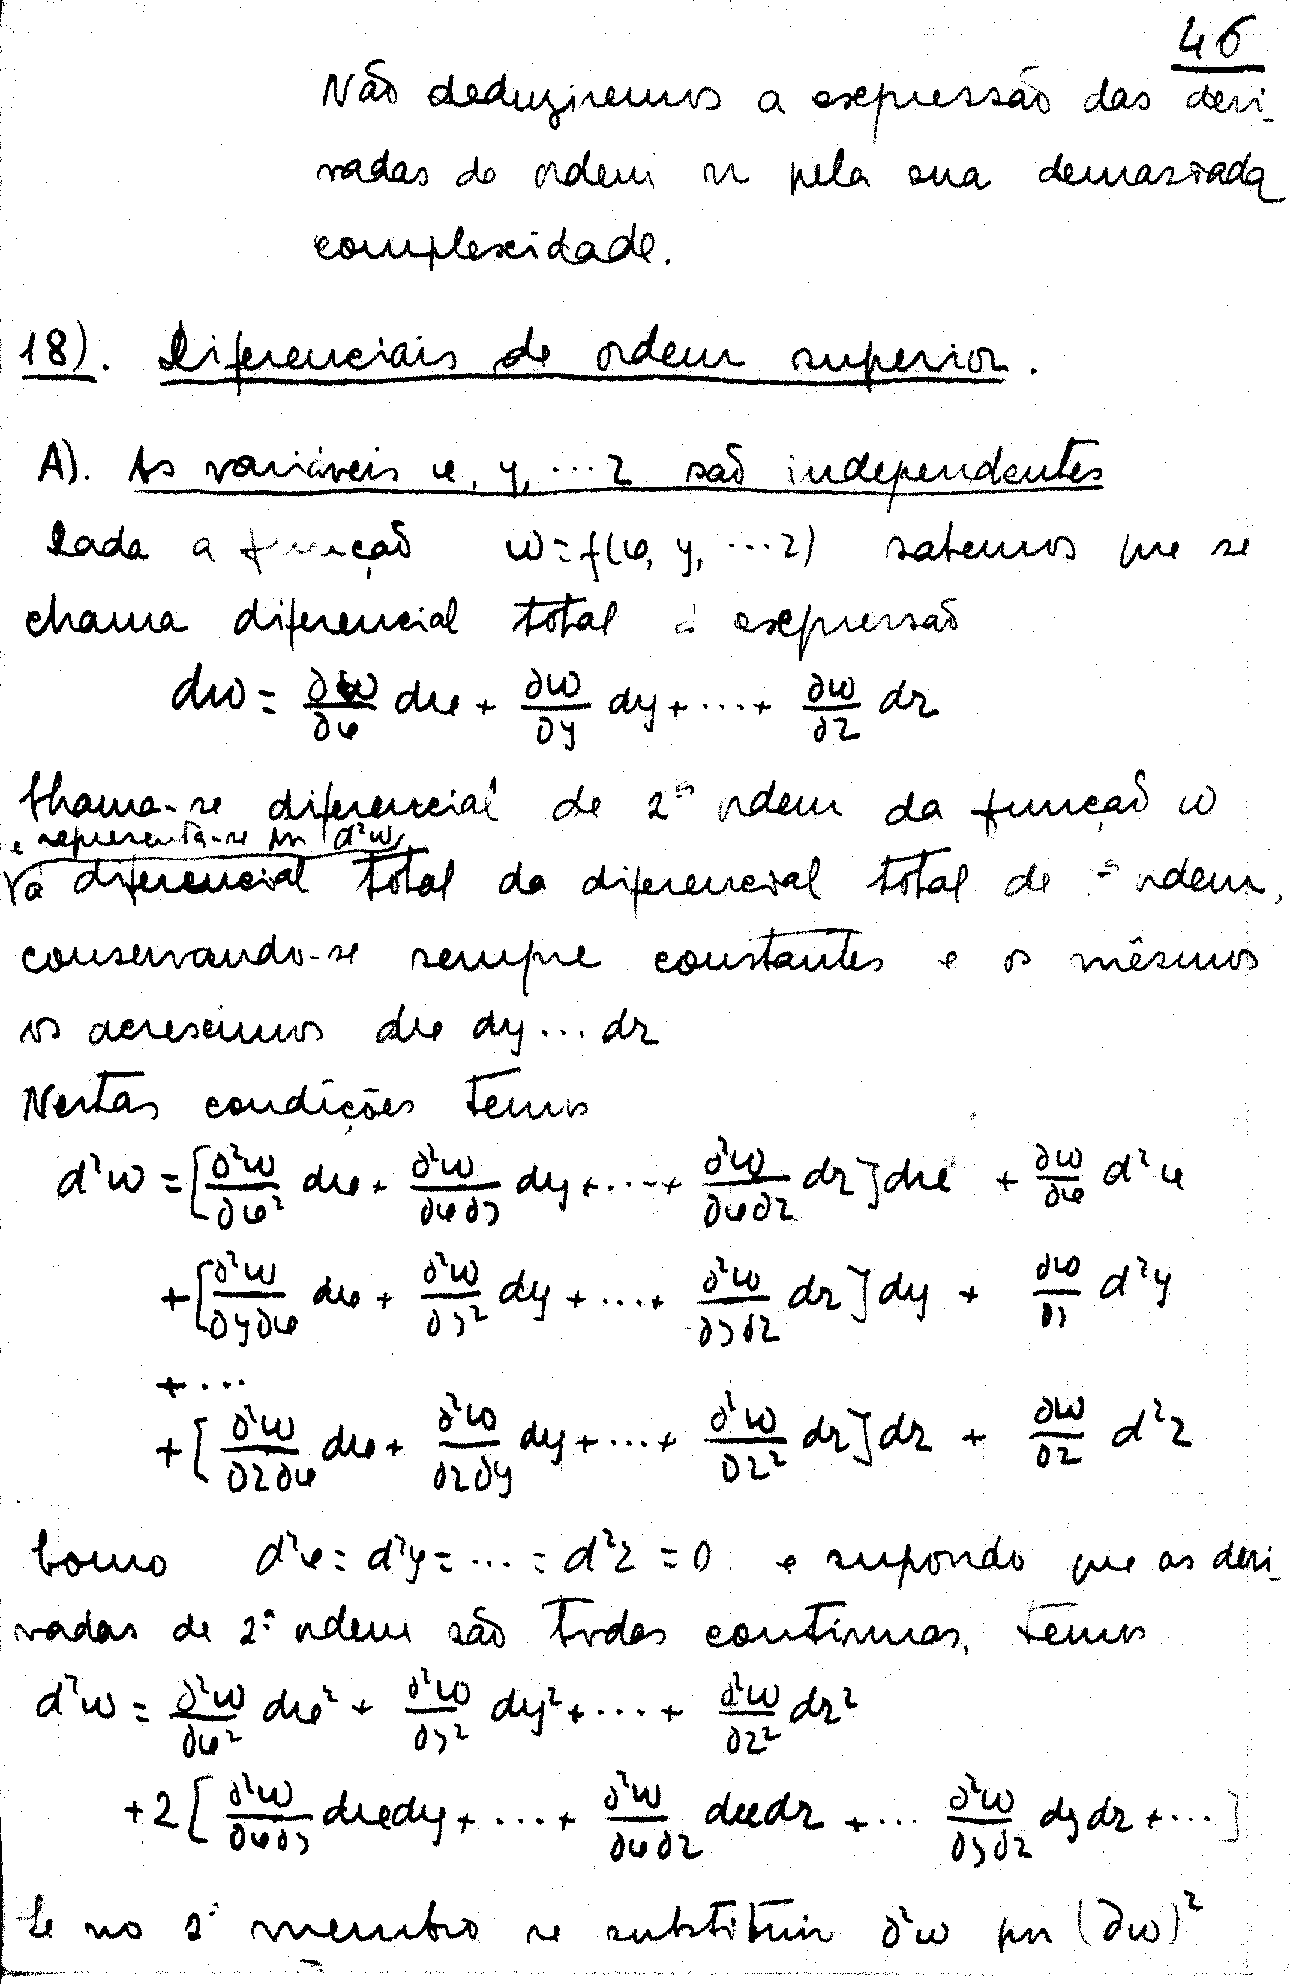 46
Não deduziremos a expressão das deri-
vadas de ordem n pela sua demasiada
complexidade.
18). Diferenciais de ordem superior.
A). As variáveis x, y, ... z são independentes
Dada a função w = f(x, y, ... z) sabemos que se
chama diferencial total à expressão
dw = ∂w/∂x dx + ∂w/∂y dy + .... + ∂w/∂z dz
Chama-se diferencial de 2ª ordem da função w
e representa-se por d²w,
a diferencial total da diferencial total de ordem,
conservando-se sempre constantes e os mêsmos
os acrescimos dx dy ... dz
Nestas condições temos
d²w = [∂²w/∂x² dx + ∂²w/∂x∂y dy + .... + ∂²w/∂x∂z dz] dx + ∂w/∂x d²x
+ [∂²w/∂y∂x dx + ∂²w/∂y² dy + .... + ∂²w/∂y∂z dz] dy + ∂w/∂y d²y
+ ...
+ [∂²w/∂z∂x dx + ∂²w/∂z∂y dy + .... + ∂²w/∂z² dz] dz + ∂w/∂z d²z
Como d²x = d²y = ... = d²z = 0 e supondo que as deri-
vadas de 2ª ordem são todas continuas, temos
d²w = ∂²w/∂x² dx² + ∂²w/∂y² dy² + .... + ∂²w/∂z² dz²
+ 2 [∂²w/∂x∂y dxdy + .... + ∂²w/∂x∂z dxdz + ... ∂²w/∂y∂z dydz + ...]
Se no 2º membro se substituir ∂²w por (∂w)²